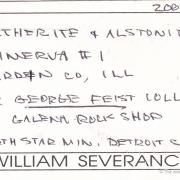 200
THERITE & ALSTONIT
NERVA #1
RDIN CO, ILL
GEORGE FEIST COLL
GALENA ROCK SHOP
TH STAR MIN, DETROIT
WILLIAM SEVERANC